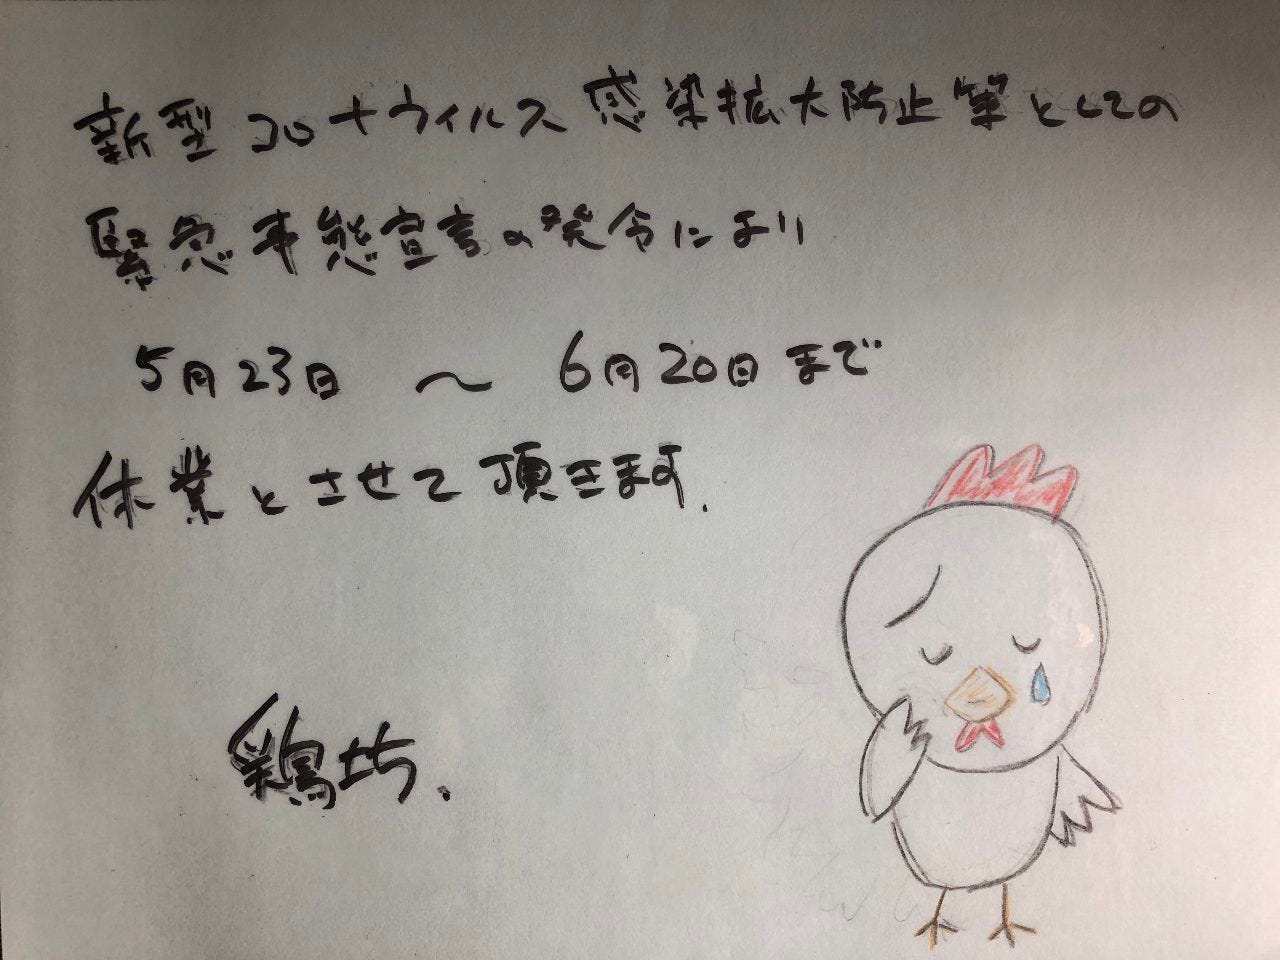 新型コロナウィルス感染拡大防止策としての
緊急事態宣言の発令により
5月23日 〜 6月20日まで
休業とさせて頂きます.
鶏坊.